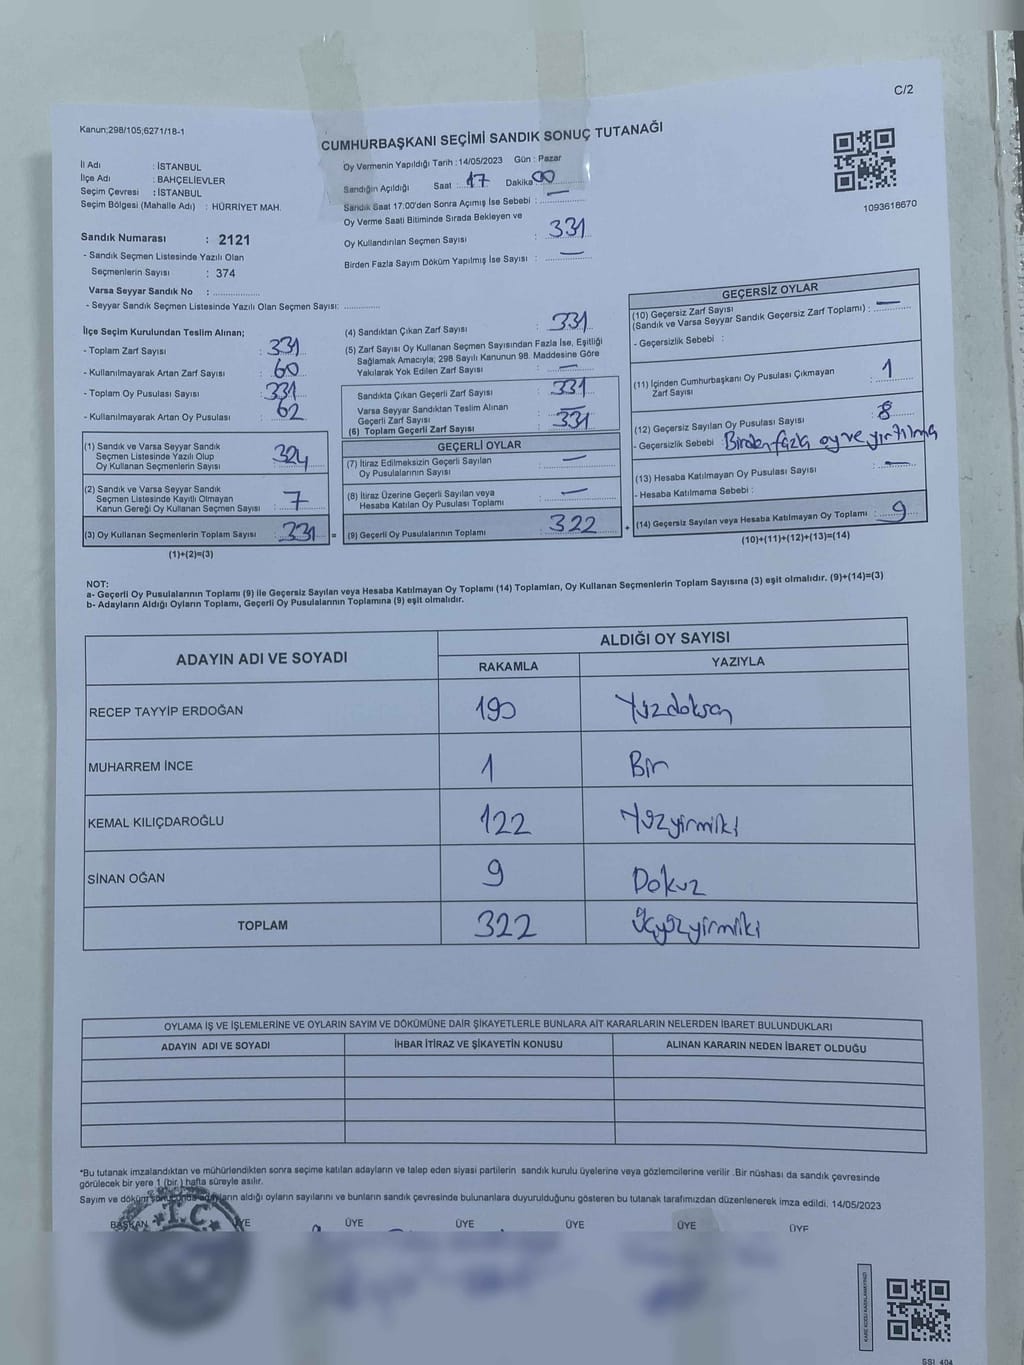 C/2
Kanun;298/105;6271/18-1
CUMHURBAŞKANI SEÇİMİ SANDIK SONUÇ TUTANAĞI
İl Adı : İSTANBUL
İlçe Adı : BAHÇELİEVLER
Seçim Çevresi : İSTANBUL
Seçim Bölgesi (Mahalle Adı) : HÜRRİYET MAH.
Oy Vermenin Yapıldığı Tarih : 14/05/2023 Gün : Pazar
Sandığın Açıldığı Saat : 17 Dakika 00
Sandık Saat 17:00'den Sonra Açımış İse Sebebi : —
Oy Verme Saati Bitiminde Sırada Bekleyen ve
Oy Kullandırılan Seçmen Sayısı : 331
Birden Fazla Sayım Döküm Yapılmış İse Sayısı : —
1093618670
Sandık Numarası : 2121
- Sandık Seçmen Listesinde Yazılı Olan
Seçmenlerin Sayısı : 374
Varsa Seyyar Sandık No :
- Seyyar Sandık Seçmen Listesinde Yazılı Olan Seçmen Sayısı:
İlçe Seçim Kurulundan Teslim Alınan;
- Toplam Zarf Sayısı : 331
- Kullanılmayarak Artan Zarf Sayısı : 60
- Toplam Oy Pusulası Sayısı : 331
- Kullanılmayarak Artan Oy Pusulası : 62
(1) Sandık ve Varsa Seyyar Sandık
Seçmen Listesinde Yazılı Olup
Oy Kullanan Seçmenlerin Sayısı : 324
(2) Sandık ve Varsa Seyyar Sandık
Seçmen Listesinde Kayıtlı Olmayan
Kanun Gereği Oy Kullanan Seçmen Sayısı : 7
(3) Oy Kullanan Seçmenlerin Toplam Sayısı : 331 =
(1)+(2)=(3)
(4) Sandıktan Çıkan Zarf Sayısı : 331
(5) Zarf Sayısı Oy Kullanan Seçmen Sayısından Fazla İse, Eşitliği
Sağlamak Amacıyla; 298 Sayılı Kanunun 98. Maddesine Göre
Yakılarak Yok Edilen Zarf Sayısı : —
Sandıkta Çıkan Geçerli Zarf Sayısı : 331
Varsa Seyyar Sandıktan Teslim Alınan
Geçerli Zarf Sayısı : —
(6) Toplam Geçerli Zarf Sayısı : 331
GEÇERLİ OYLAR
(7) İtiraz Edilmeksizin Geçerli Sayılan
Oy Pusulalarının Sayısı : —
(8) İtiraz Üzerine Geçerli Sayılan veya
Hesaba Katılan Oy Pusulası Toplamı : —
(9) Geçerli Oy Pusulalarının Toplamı : 322 +
GEÇERSİZ OYLAR
(10) Geçersiz Zarf Sayısı
(Sandık ve Varsa Seyyar Sandık Geçersiz Zarf Toplamı) : —
- Geçersizlik Sebebi :
(11) İçinden Cumhurbaşkanı Oy Pusulası Çıkmayan
Zarf Sayısı : 1
(12) Geçersiz Sayılan Oy Pusulası Sayısı : 8
- Geçersizlik Sebebi Birden fazla oy ve yırtılma
(13) Hesaba Katılmayan Oy Pusulası Sayısı : —
- Hesaba Katılmama Sebebi :
(14) Geçersiz Sayılan veya Hesaba Katılmayan Oy Toplamı : 9
(10)+(11)+(12)+(13)=(14)
NOT:
a- Geçerli Oy Pusulalarının Toplamı (9) ile Geçersiz Sayılan veya Hesaba Katılmayan Oy Toplamı (14) Toplamları, Oy Kullanan Seçmenlerin Toplam Sayısına (3) eşit olmalıdır. (9)+(14)=(3)
b- Adayların Aldığı Oyların Toplamı, Geçerli Oy Pusulalarının Toplamına (9) eşit olmalıdır.
ADAYIN ADI VE SOYADI ALDIĞI OY SAYISI
RAKAMLA YAZIYLA
RECEP TAYYİP ERDOĞAN 190 Yüzdoksan
MUHARREM İNCE 1 Bir
KEMAL KILIÇDAROĞLU 122 Yüzyirmiiki
SİNAN OĞAN 9 Dokuz
TOPLAM 322 Üçyüzyirmiiki
OYLAMA İŞ VE İŞLEMLERİNE VE OYLARIN SAYIM VE DÖKÜMÜNE DAİR ŞİKAYETLERLE BUNLARA AİT KARARLARIN NELERDEN İBARET BULUNDUKLARI
ADAYIN ADI VE SOYADI İHBAR İTİRAZ VE ŞİKAYETİN KONUSU ALINAN KARARIN NEDEN İBARET OLDUĞU
*Bu tutanak imzalandıktan ve mühürlendikten sonra seçime katılan adayların ve talep eden siyasi partilerin sandık kurulu üyelerine veya gözlemcilerine verilir .Bir nüshası da sandık çevresinde
görülecek bir yere 1 (bir ) hafta süreyle asılır.
Sayım ve döküm sonucunda adayların aldığı oyların sayılarını ve bunların sandık çevresinde bulunanlara duyurulduğunu gösteren bu tutanak tarafımızdan düzenlenerek imza edildi. 14/05/2023
BAŞKAN ÜYE ÜYE ÜYE ÜYE ÜYE ÜYE
T.C.
SSI_404